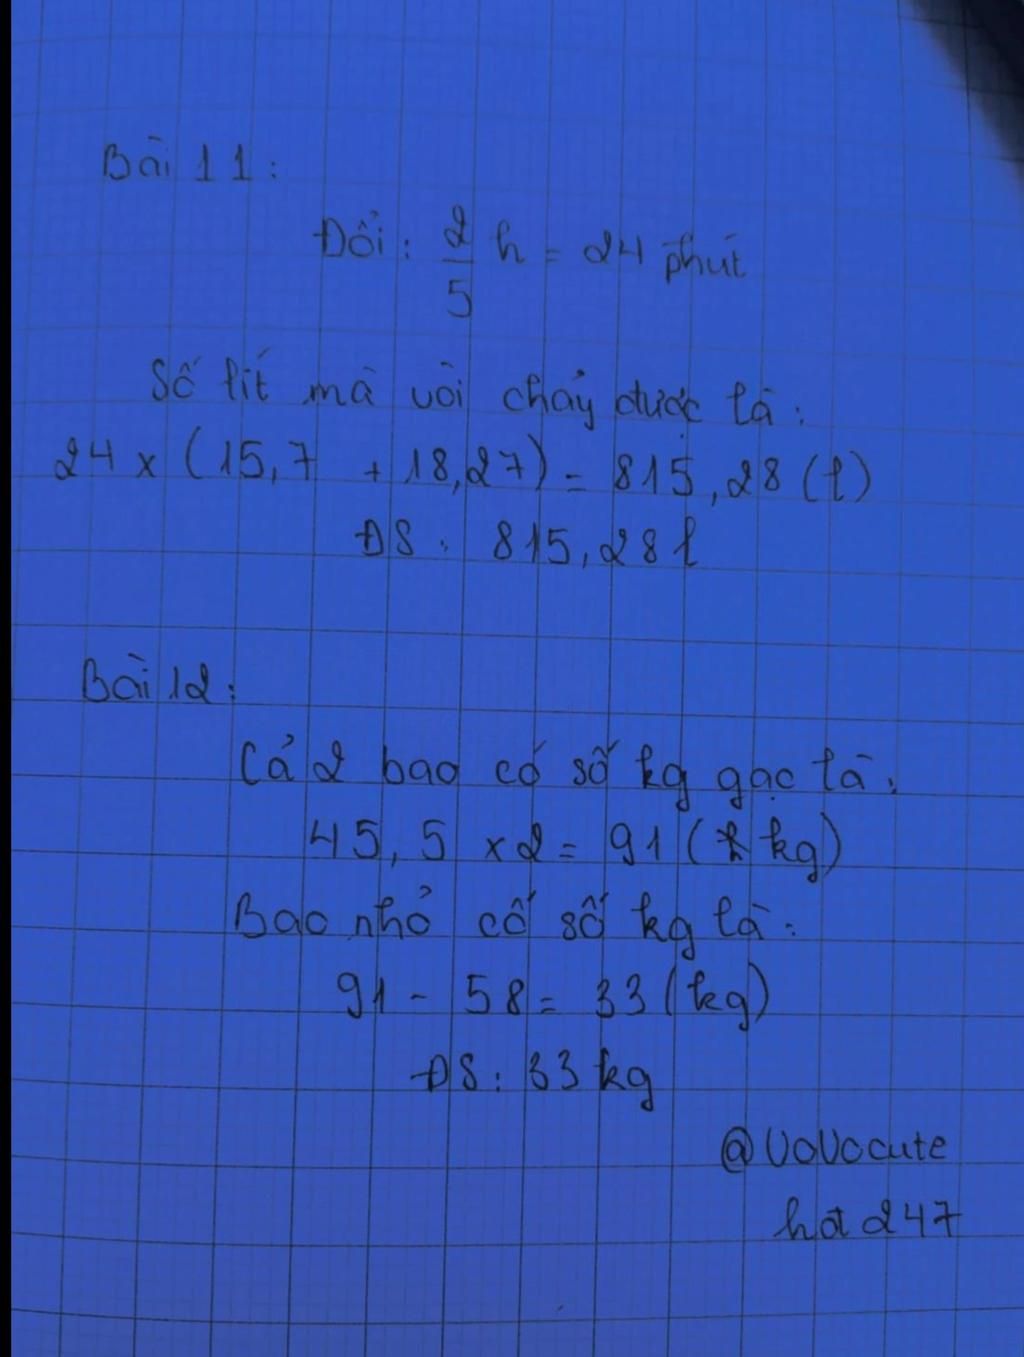 Bài 11:
Đổi: 2/5 h = 24 phút
Số lít mà vòi chảy được là:
24 x (15,7 + 18,27) = 815,28 (l)
ĐS: 815,28 l
Bài 12:
Cả 2 bao có số kg gạc là:
45,5 x 2 = 91 (kg)
Bao nhỏ cố số kg là:
91 - 58 = 33 (kg)
ĐS: 33 kg
@VoVocute
hot 247